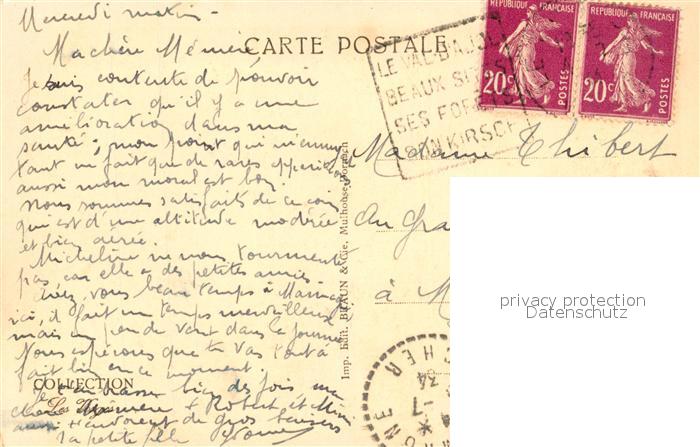 Mercredi matin
Ma chère Mémère
Je suis contente de pouvoir
constater qu'il y a une
amélioration dans ma
santé ; mon point qui m'ennuy
tant ne fait que de rares apparitions
aussi mon moral est bon.
Nous sommes satisfaits de ce coin
qui est d'une altitude modérée
et bien aérée.
Micheline ne nous tourmente
pas car elle a des petites amies.
chez vous beau temps à
ici, il fait un temps merveilleux
mais un peu de vent dans la journée
Nous espérons que tu vas tout à
fait bien en ce moment.
Je t'embrasse bien des fois ma
chère Mémère + Robert et Mimi
aussi t'envoient de gros baisers
ta petite fille Yvonne
COLLECTION
CARTE POSTALE
Imp. Edit. BRAUN & Cie, Mulhouse-Dornach
LE VAL D'AJOL
BEAUX SITES
SES FORÊTS
SON KIRSCH
REPUBLIQUE FRANÇAISE
20c
POSTES
REPUBLIQUE FRANÇAISE
20c
POSTES
Madame Thibert
au Gra
à M
CHER
7
34
NE
privacy protection
Datenschutz